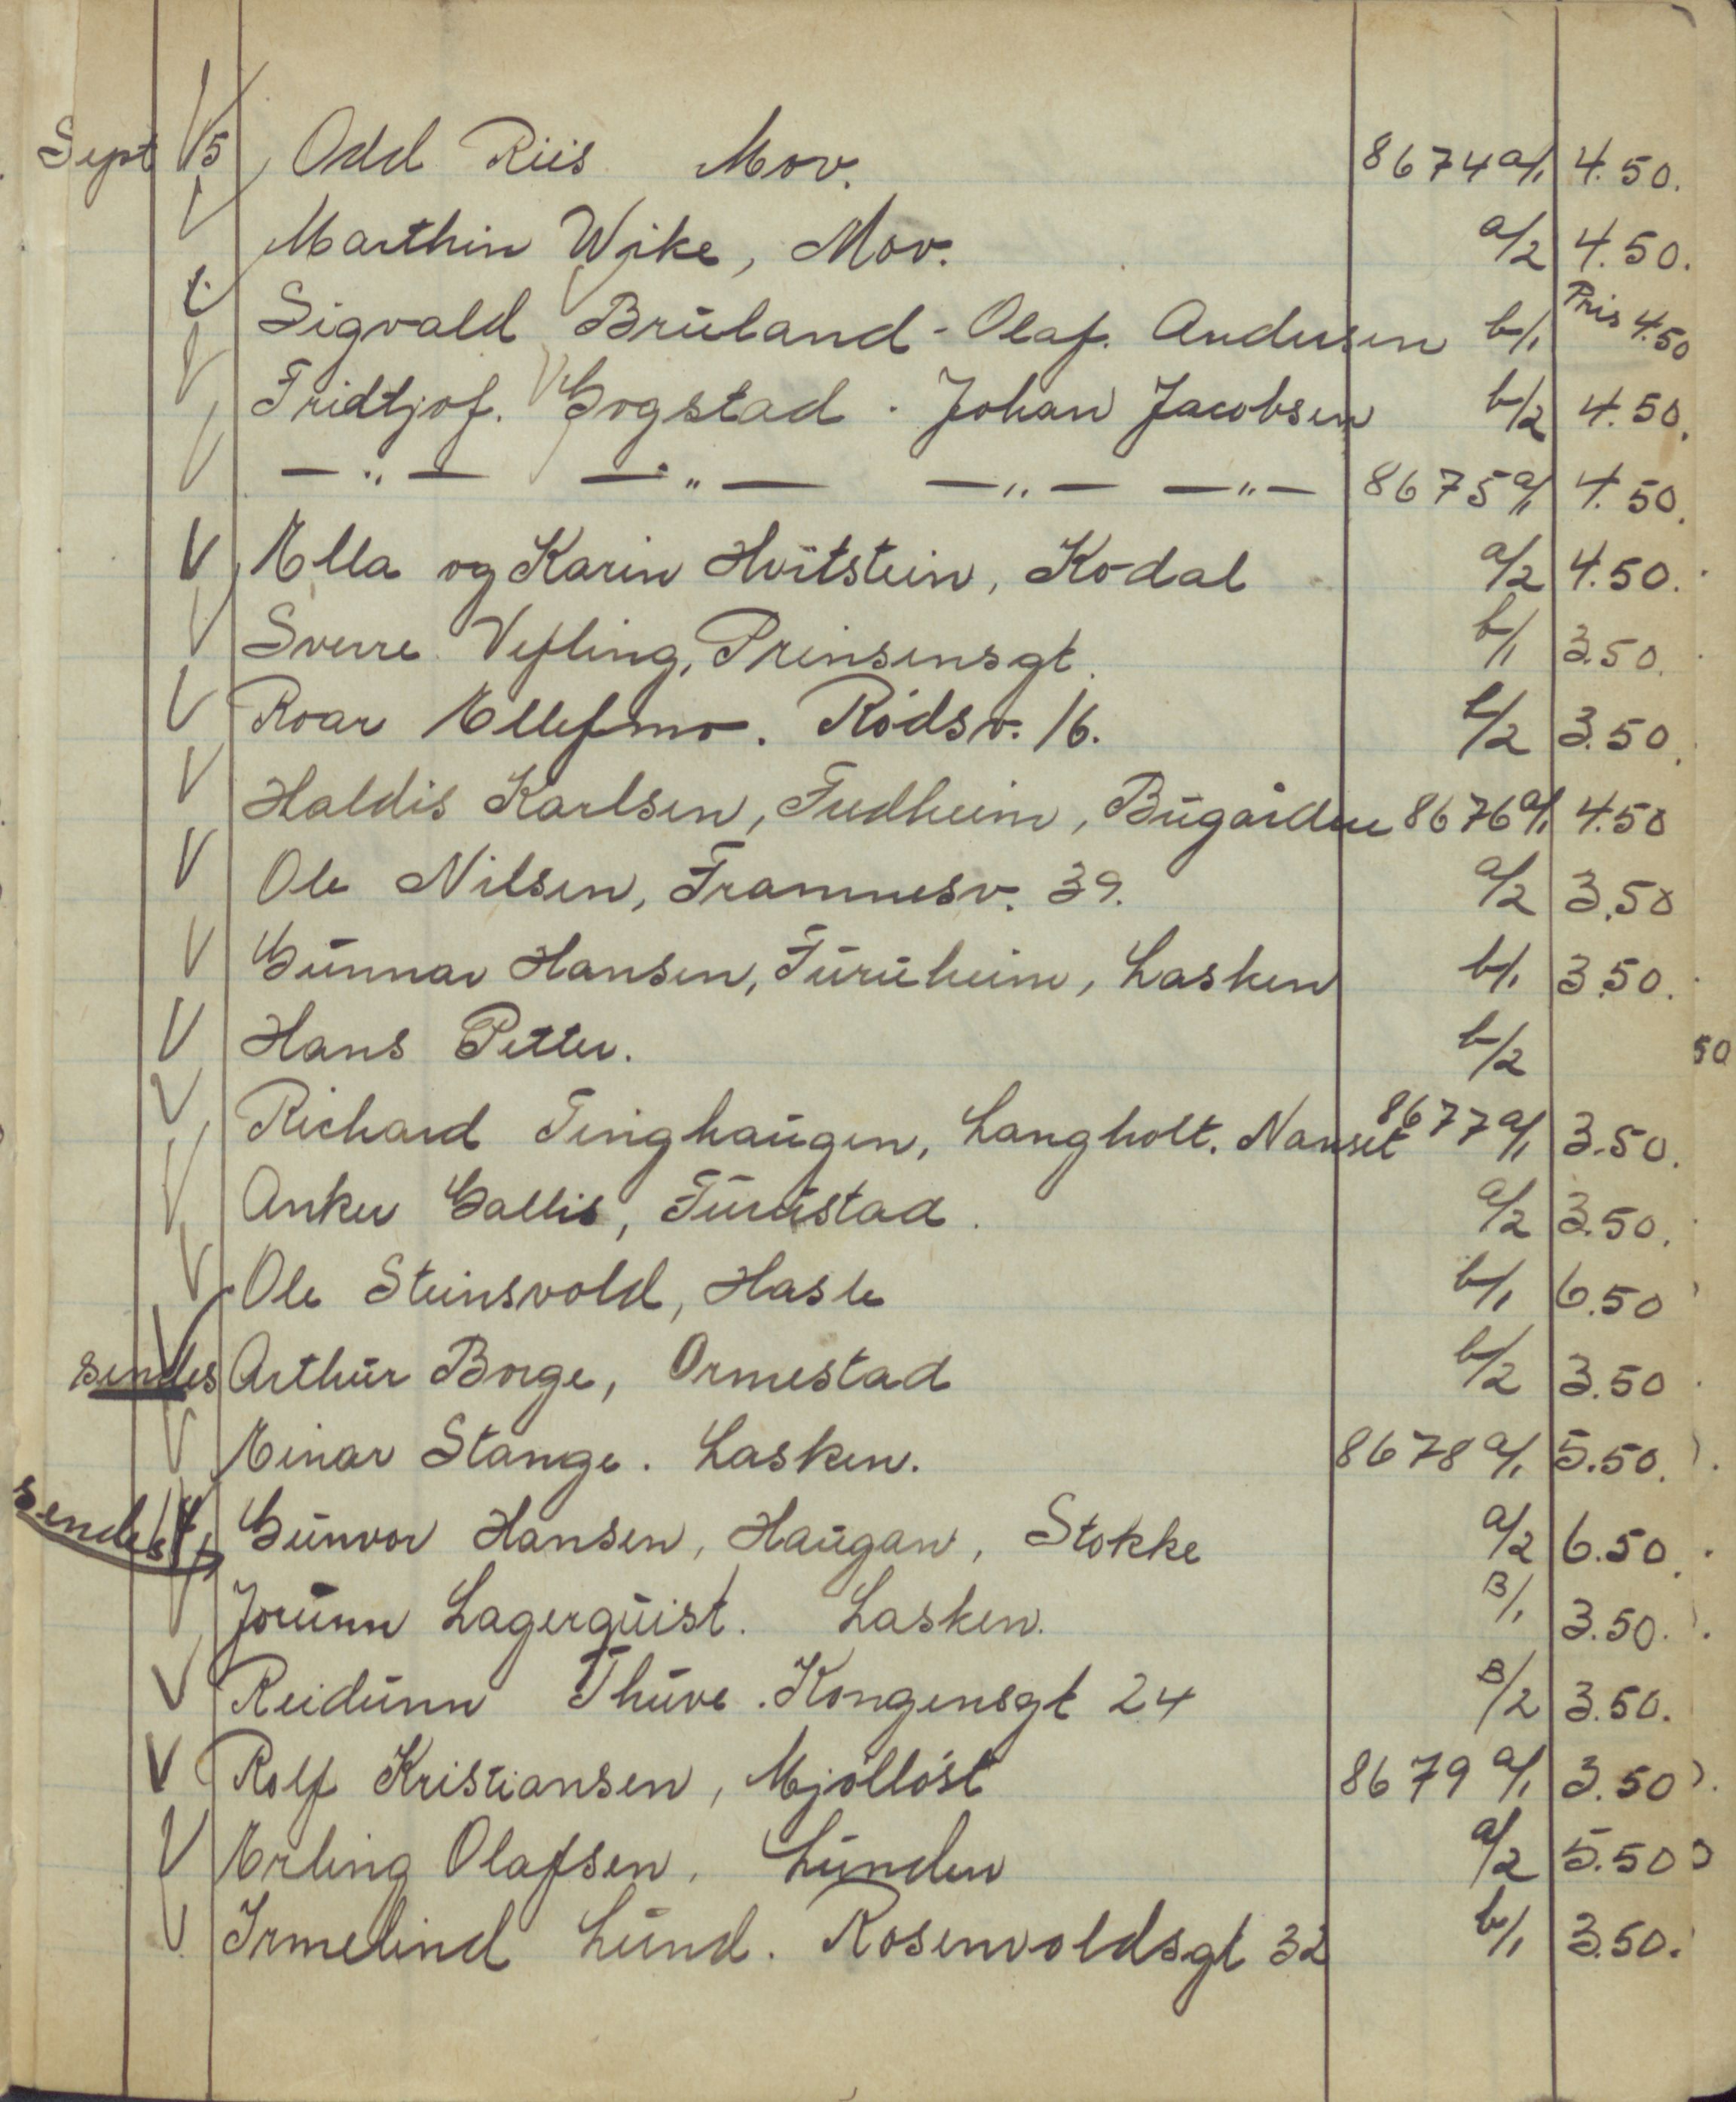 Sept 15 Odd Riis Mov. 8674 a/1 4.50.
Marthin Wike, Mov. a/2 4.50.
Sigvald Bruland - Olaf. Andersen b/1 Pris 4.50
Fridtjof. Gogstad. Johan Jacobsen b/2 4.50.
— „ — — „ — — „ — — „ — 8675 a/1 4.50.
Ella og Karin Hvitstein, Kodal a/2 4.50.
Sverre Vefling, Prinsensgt. b/1 3.50.
Roar Ellefmo. Rødsv. 16. b/2 3.50.
Haldis Karlsen, Fredheim, Bugården 8676 a/1 4.50
Ole Nilsen, Framnesv. 39. a/2 3.50
Gunnar Hansen, Furuheim, Lasken b/1 3.50.
Hans Petter. b/2
50
Richard Tinghaugen, Langholt. Nanset 8677 a/1 3.50.
Anker Gallis, Furustad. a/2 3.50.
Ole Steinsvold, Hasle b/1 6.50
sendes Arthur Borge, Ormestad b/2 3.50
Einar Stange. Lasken. 8678 a/1 5.50.
sendes Gunvor Hansen, Haugan, Stokke a/2 6.50.
Jorunn Lagerquist. Lasken. B/1 3.50.
Reidunn Thuve. Kongensgt 24 B/2 3.50.
Rolf Kristiansen, Mjølløst 8679 a/1 3.50
Erling Olafsen. Lunden a/2 5.50
Irmelind Lund. Rosenvoldsgt 32 b/1 3.50.